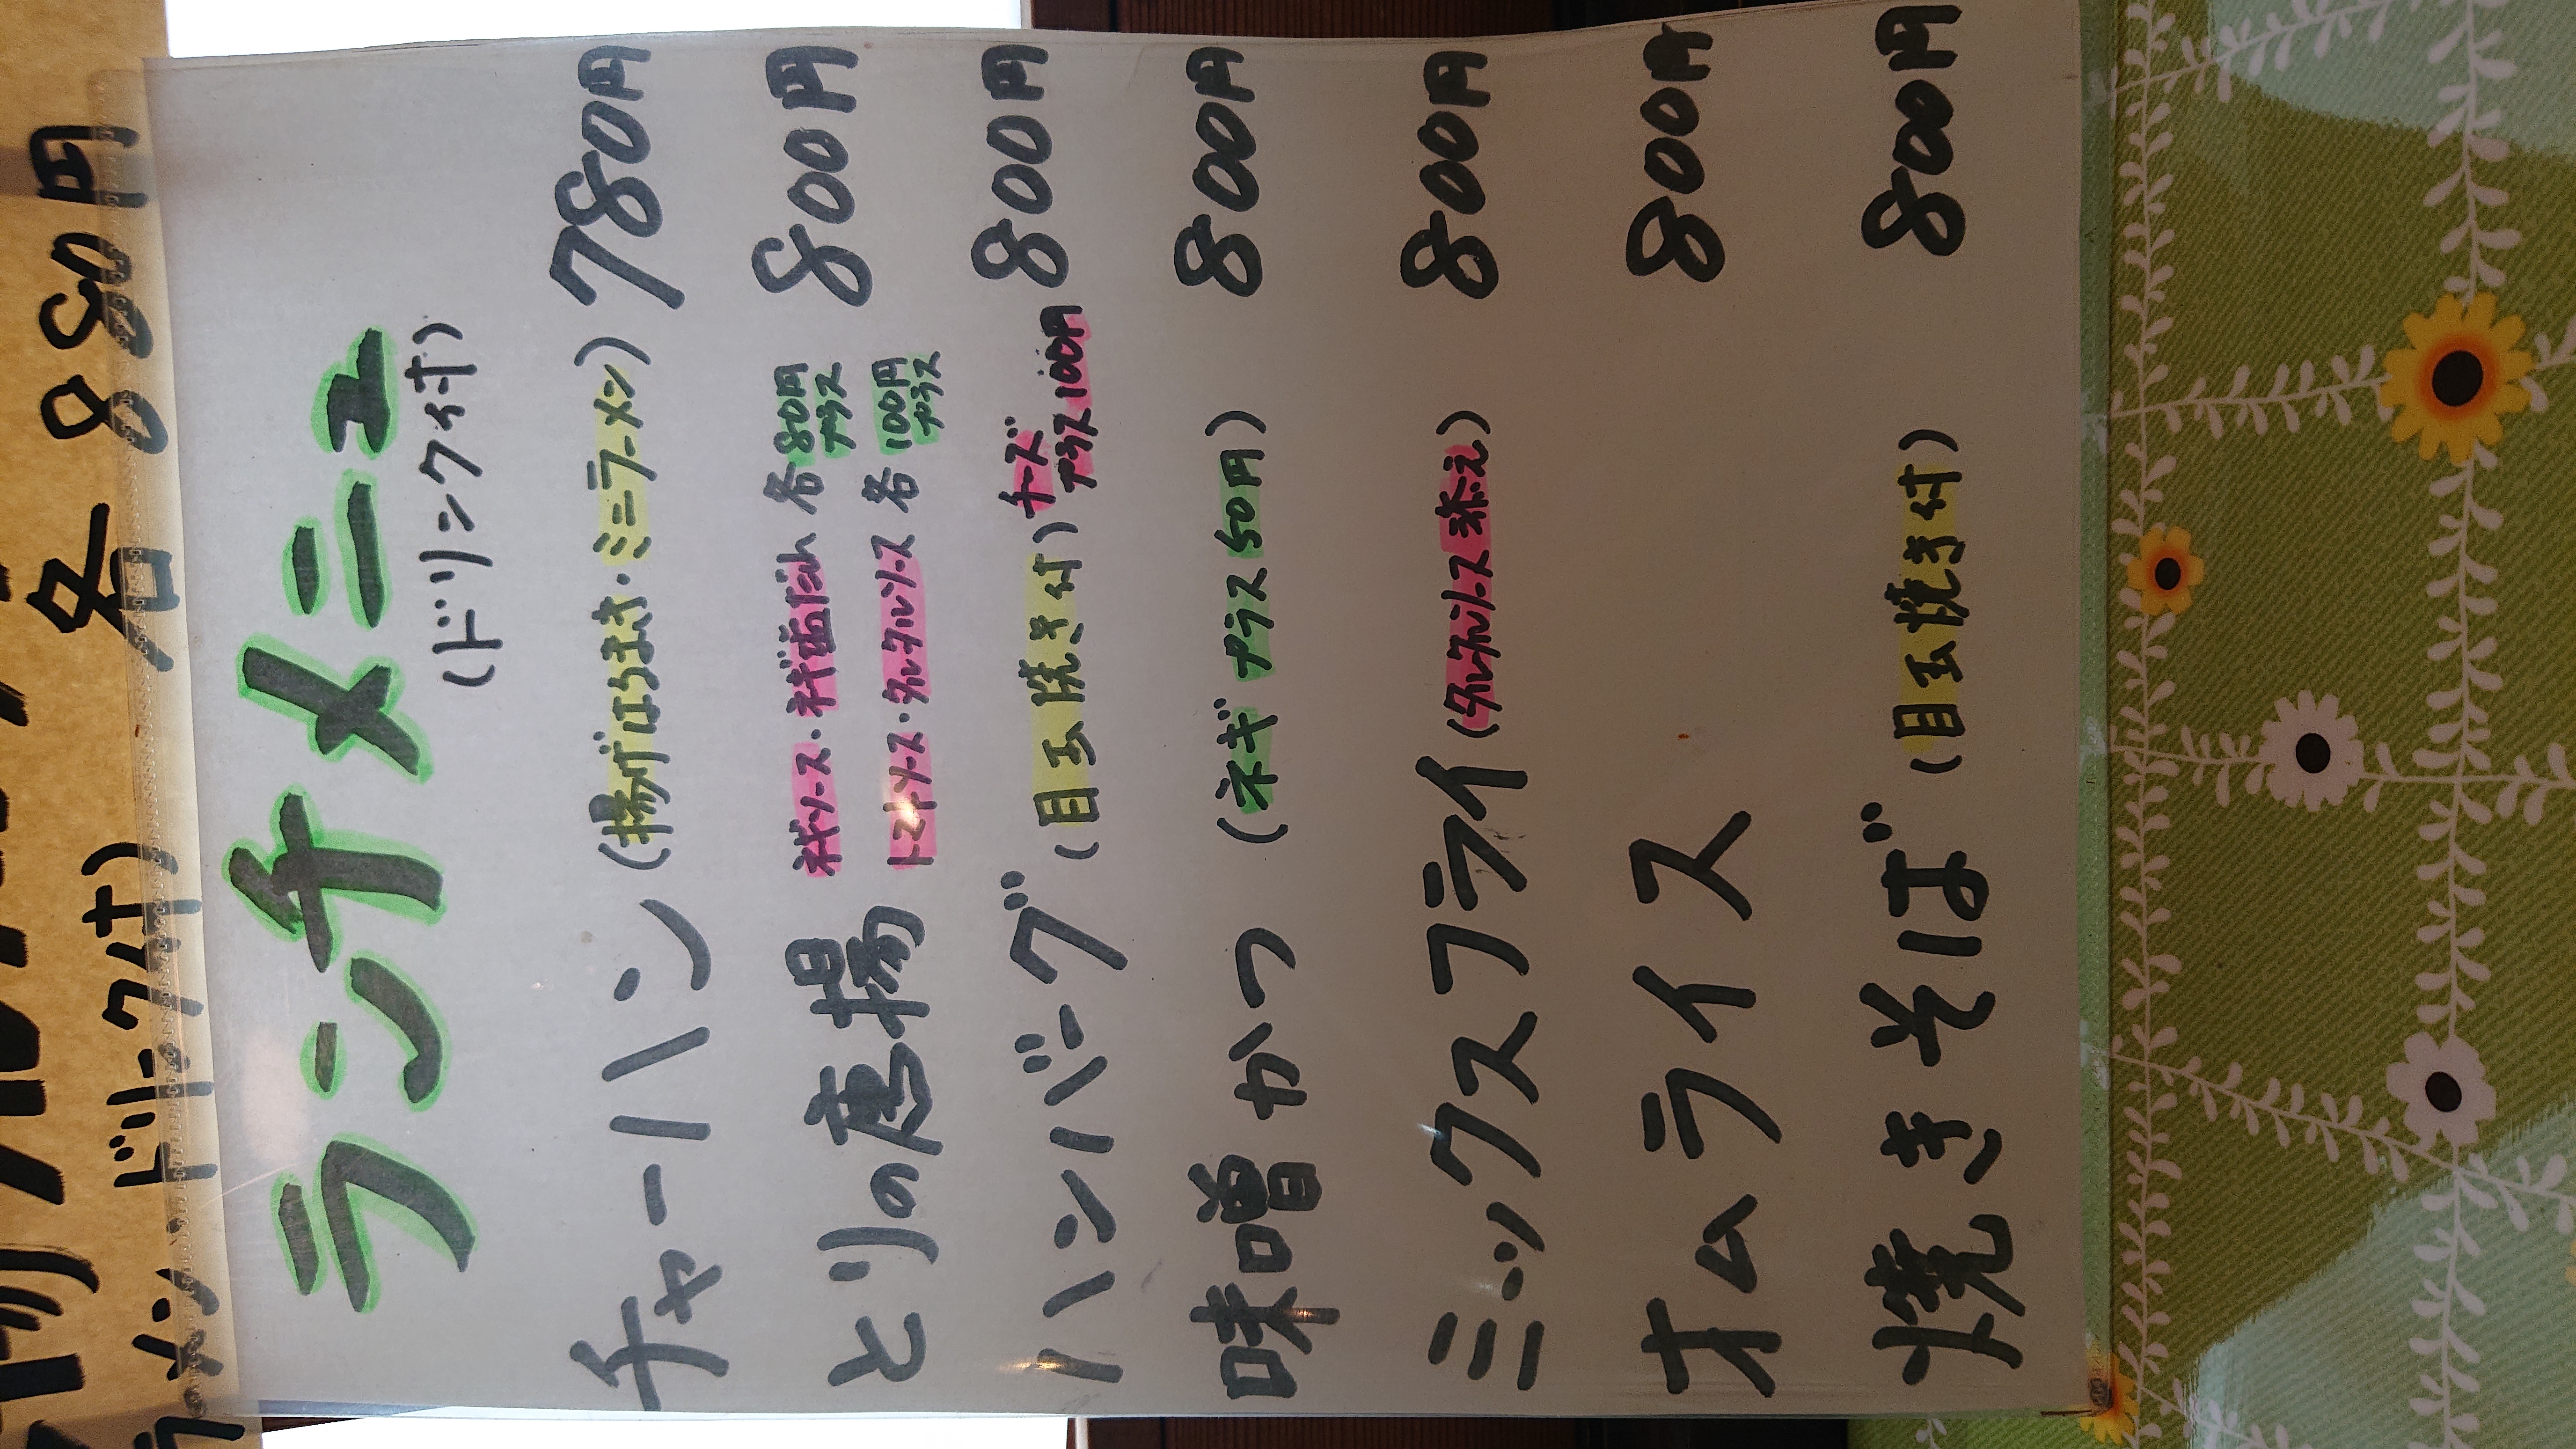 各880円
ドリンク付
ランチメニュー
(ドリンク付)
チャーハン (揚げはるまき・ミニラーメン) 780円
とりの唐揚 800円
ネギソース・ネギ塩だれ 各80円プラス
トマトソース・タルタルソース 各100円プラス
ハンバーグ (目玉焼き付) チーズプラス100円 800円
味噌かつ (ネギプラス50円) 800円
ミックスフライ (タルタルソース添え) 800円
オムライス 800円
焼きそば (目玉焼き付) 800円